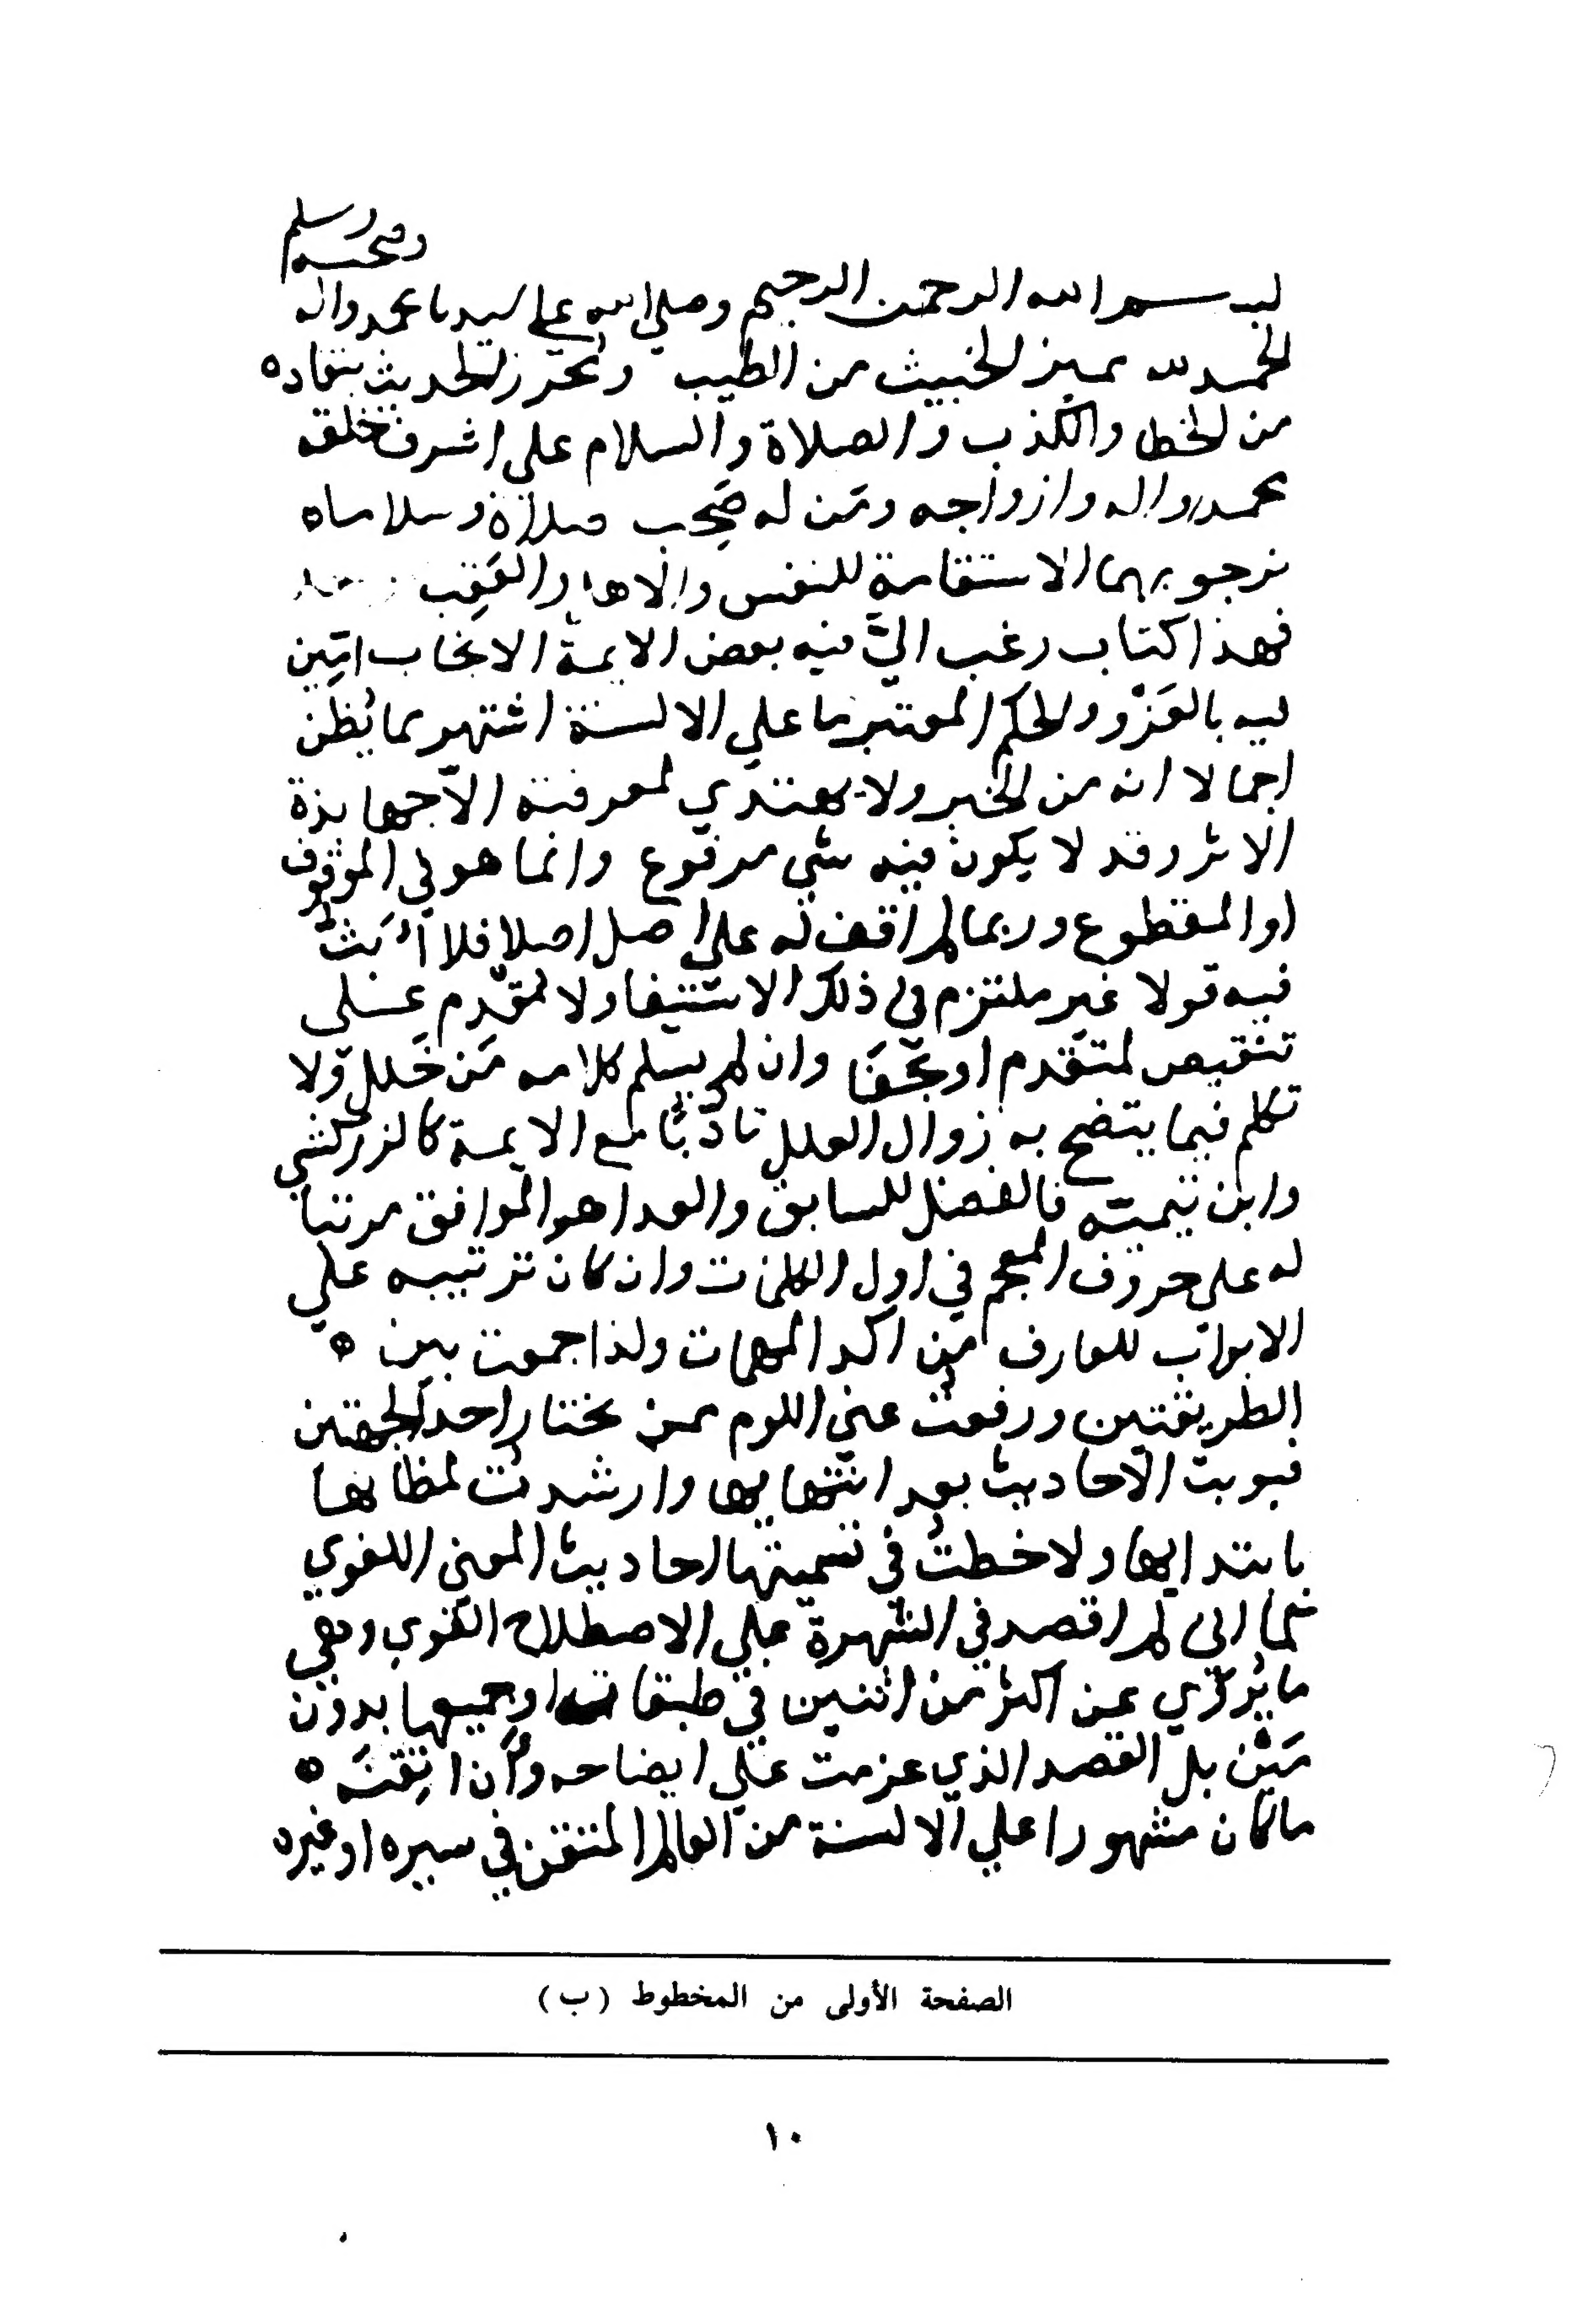 وصحبه وسلم
بسم الله الرحمن الرحيم وصلى الله على سيدنا محمد واله
الحمد لله مميز الخبيث من الطيب ومحرز الحديث بنقاده
من الخطا والكذب والصلاة والسلام على اشرف خلقه
محمد واله وازواجه ومَن له صَحِب صلاة وسلاماه
نرجو بهما الاستقامة للنفس والاهل والعَقِب
فهذا كتاب رغب اليَّ فيه بعض الايمة الانجاب ابَيِّن
فيه بالعَزْو والحكم المعتبر ما على الالسنة اشتهر مما يُظن
اجمالا انه من الخبر ولا يهتدي لمعرفته الا جهابذة
الاثر وقد لا يكون فيه شي مرفوع وانما هو في الموقوف
او المقطوع وربما لم اقف له على اصل اصلا فلا أبُثّ
فيه قولا غير ملتزم في ذلك الاستيفا ولا مقدم على
تنقيص لمتقدم او بجفا وان لم يسلم كلامه من خَلل ولا
تكلم فيما يتضح به زوال العلل تادّبًا مع الايمة كالزركشي
وابن تيمية فالفضل للسابق والعدل هو الموافق مرتبا
له على حروف المعجم في اول الكلمات وان كان ترتيبه علي
الابواب للعارف من اكد المهمات ولذا جمعت بين *
الطريقتين ورفعت عني اللوم ممن يختار احد الجهتين
فبوبت الاحاديث بعد انتهايها وارشدت لمظانها
بابتدايها ولاحظتُ في تسميتها احاديث المعنى اللغوي
كما اني لم اقصد في الشهرة على الاصطلاح القوي وهي
ما يُروَي عن اكثر من اثنين في طبقاته او جميعها بدون
مَيْن بل القصد الذي عزمت على ايضاحه وأن اتقنَه *
ما كان مشهورا علي الالسنة من العالم المتقن في سيره او غيره
الصفحة الأولى من المخطوط (ب)
١٠